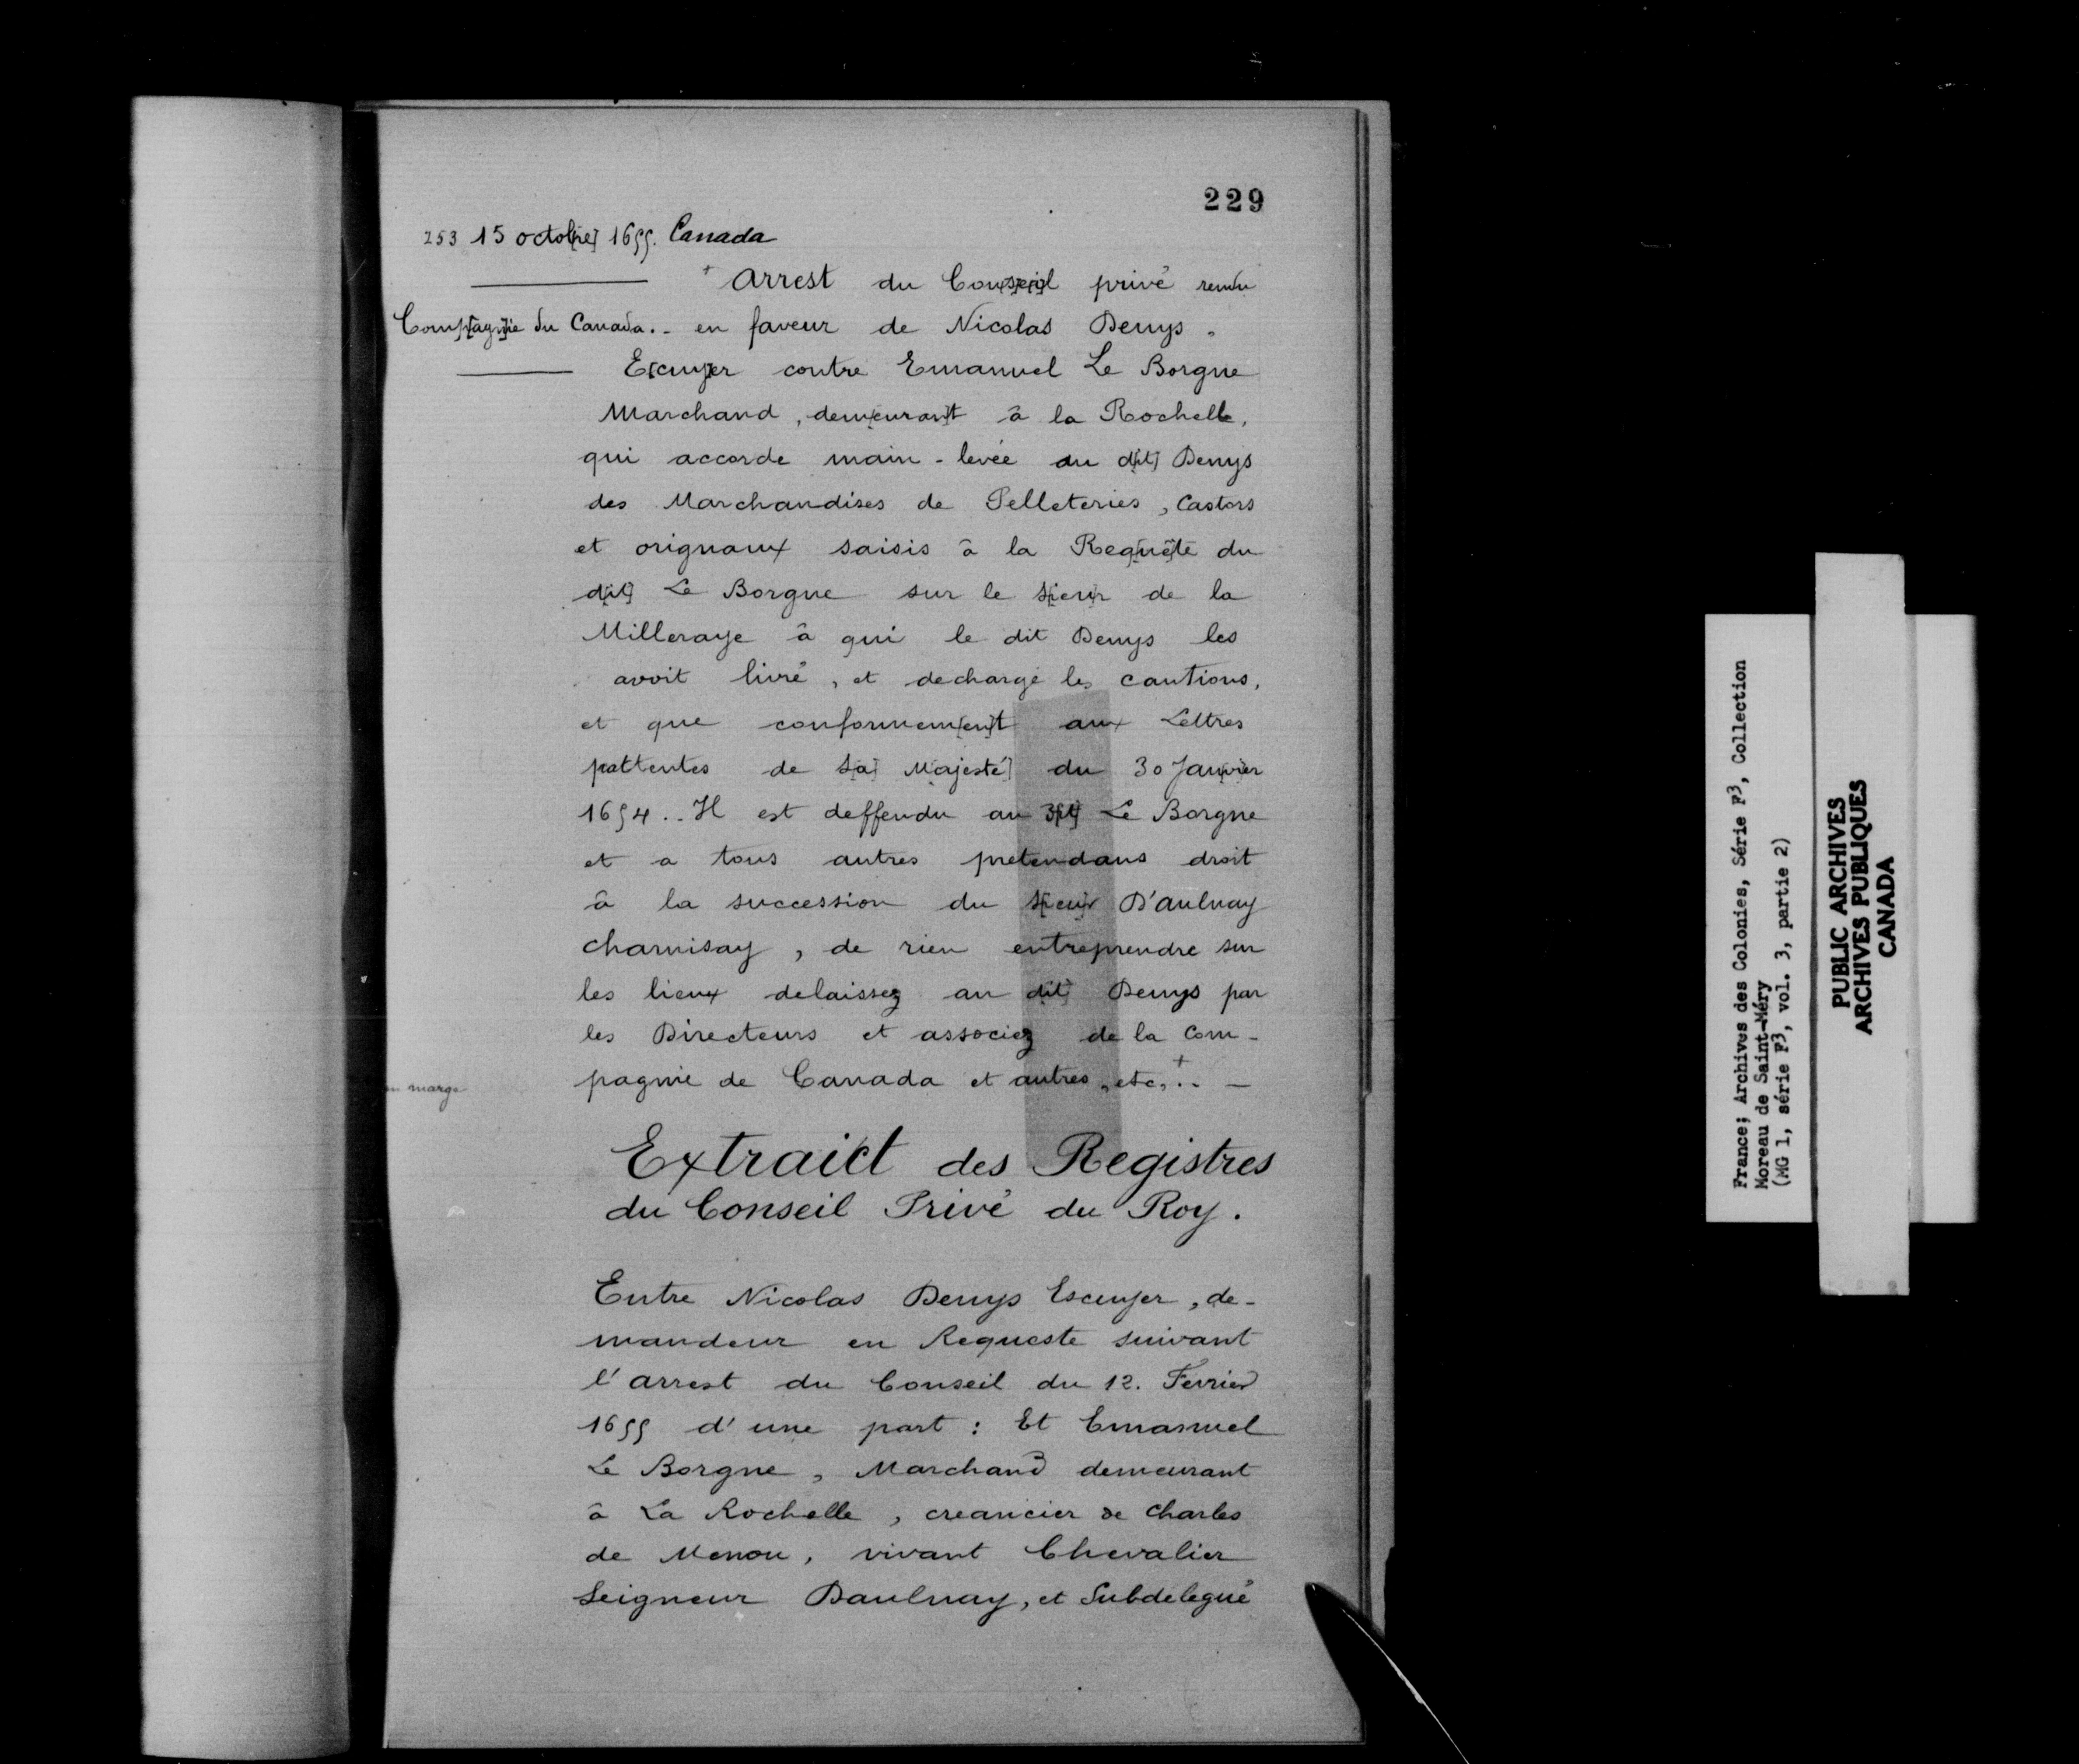 229
253 15 octo[bre] 1655. Canada
+ Arrest du Con[sei]l privé rendu
Comp[agn]ie du Canada.. en faveur de Nicolas Denys.
E[cuy]er contre Emanuel Le Borgne
Marchand, dem[euran]t à la Rochelle,
qui accorde main-levée au d[it] Denys
des Marchandises de Pelleteries, Castors
et orignaux saisis à la Req[uê]te du
d[it] Le Borgne sur le s[ieu]r de la
Milleraye à qui le dit Denys les
avoit livré, et decharge les cautions,
et que conformem[en]t aux Lettres
pattentes de Sa[] M[ajesté] du 30 Jan[vi]er
1654.. Il est deffendu au Le Borgne
et a tous autres pretendans droit
à la succession du s[ieu]r D'aulnay
charnisay, de rien entreprendre sur
les lieux delaissez au dit] Denys par
les Directeurs et associez de la Com-
en marge
pagnie de Canada et autres, etc, +.. —
Extraict des Registres
du Conseil Privé du Roy.
Entre Nicolas Denys Escuyer, de-
mandeur en Requeste suivant
l'arrest du Conseil du 12. Fevrier
1655 d'une part : Et Emanuel
Le Borgne, Marchand demeurant
à La Rochelle, creancier de Charles
de Menou, vivant Chevalier
Seigneur Daulnay, et Subdelegué
France; Archives des Colonies, Série F3, Collection
Moreau de Saint-Méry
(MG 1, série F3, vol. 3, partie 2)
PUBLIC ARCHIVES
ARCHIVES PUBLIQUES
CANADA